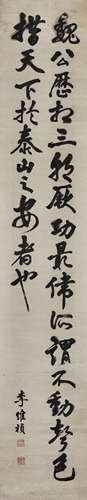 魏公歷相三朝厥功最偉所謂不動聲色
措天下於泰山之安者也
李維楨